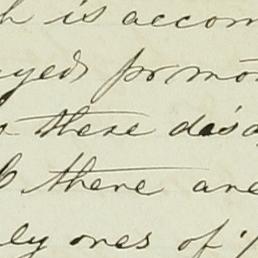 is accom
for mo
these disa
there are
ly ones of